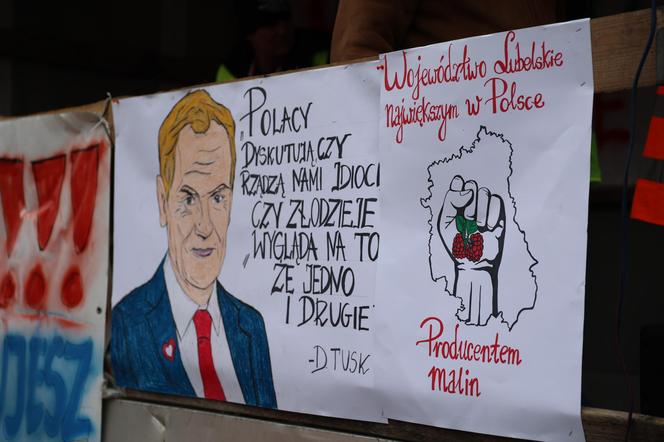 !!!
DESZ
„POLACY
DYSKUTUJĄ, CZY
RZĄDZĄ NAMI IDIOCI
CZY ZŁODZIEJE
WYGLĄDA NA TO
ŻE JEDNO
I DRUGIE"
-D.TUSK
Województwo Lubelskie
największym w Polsce
Producentem
malin